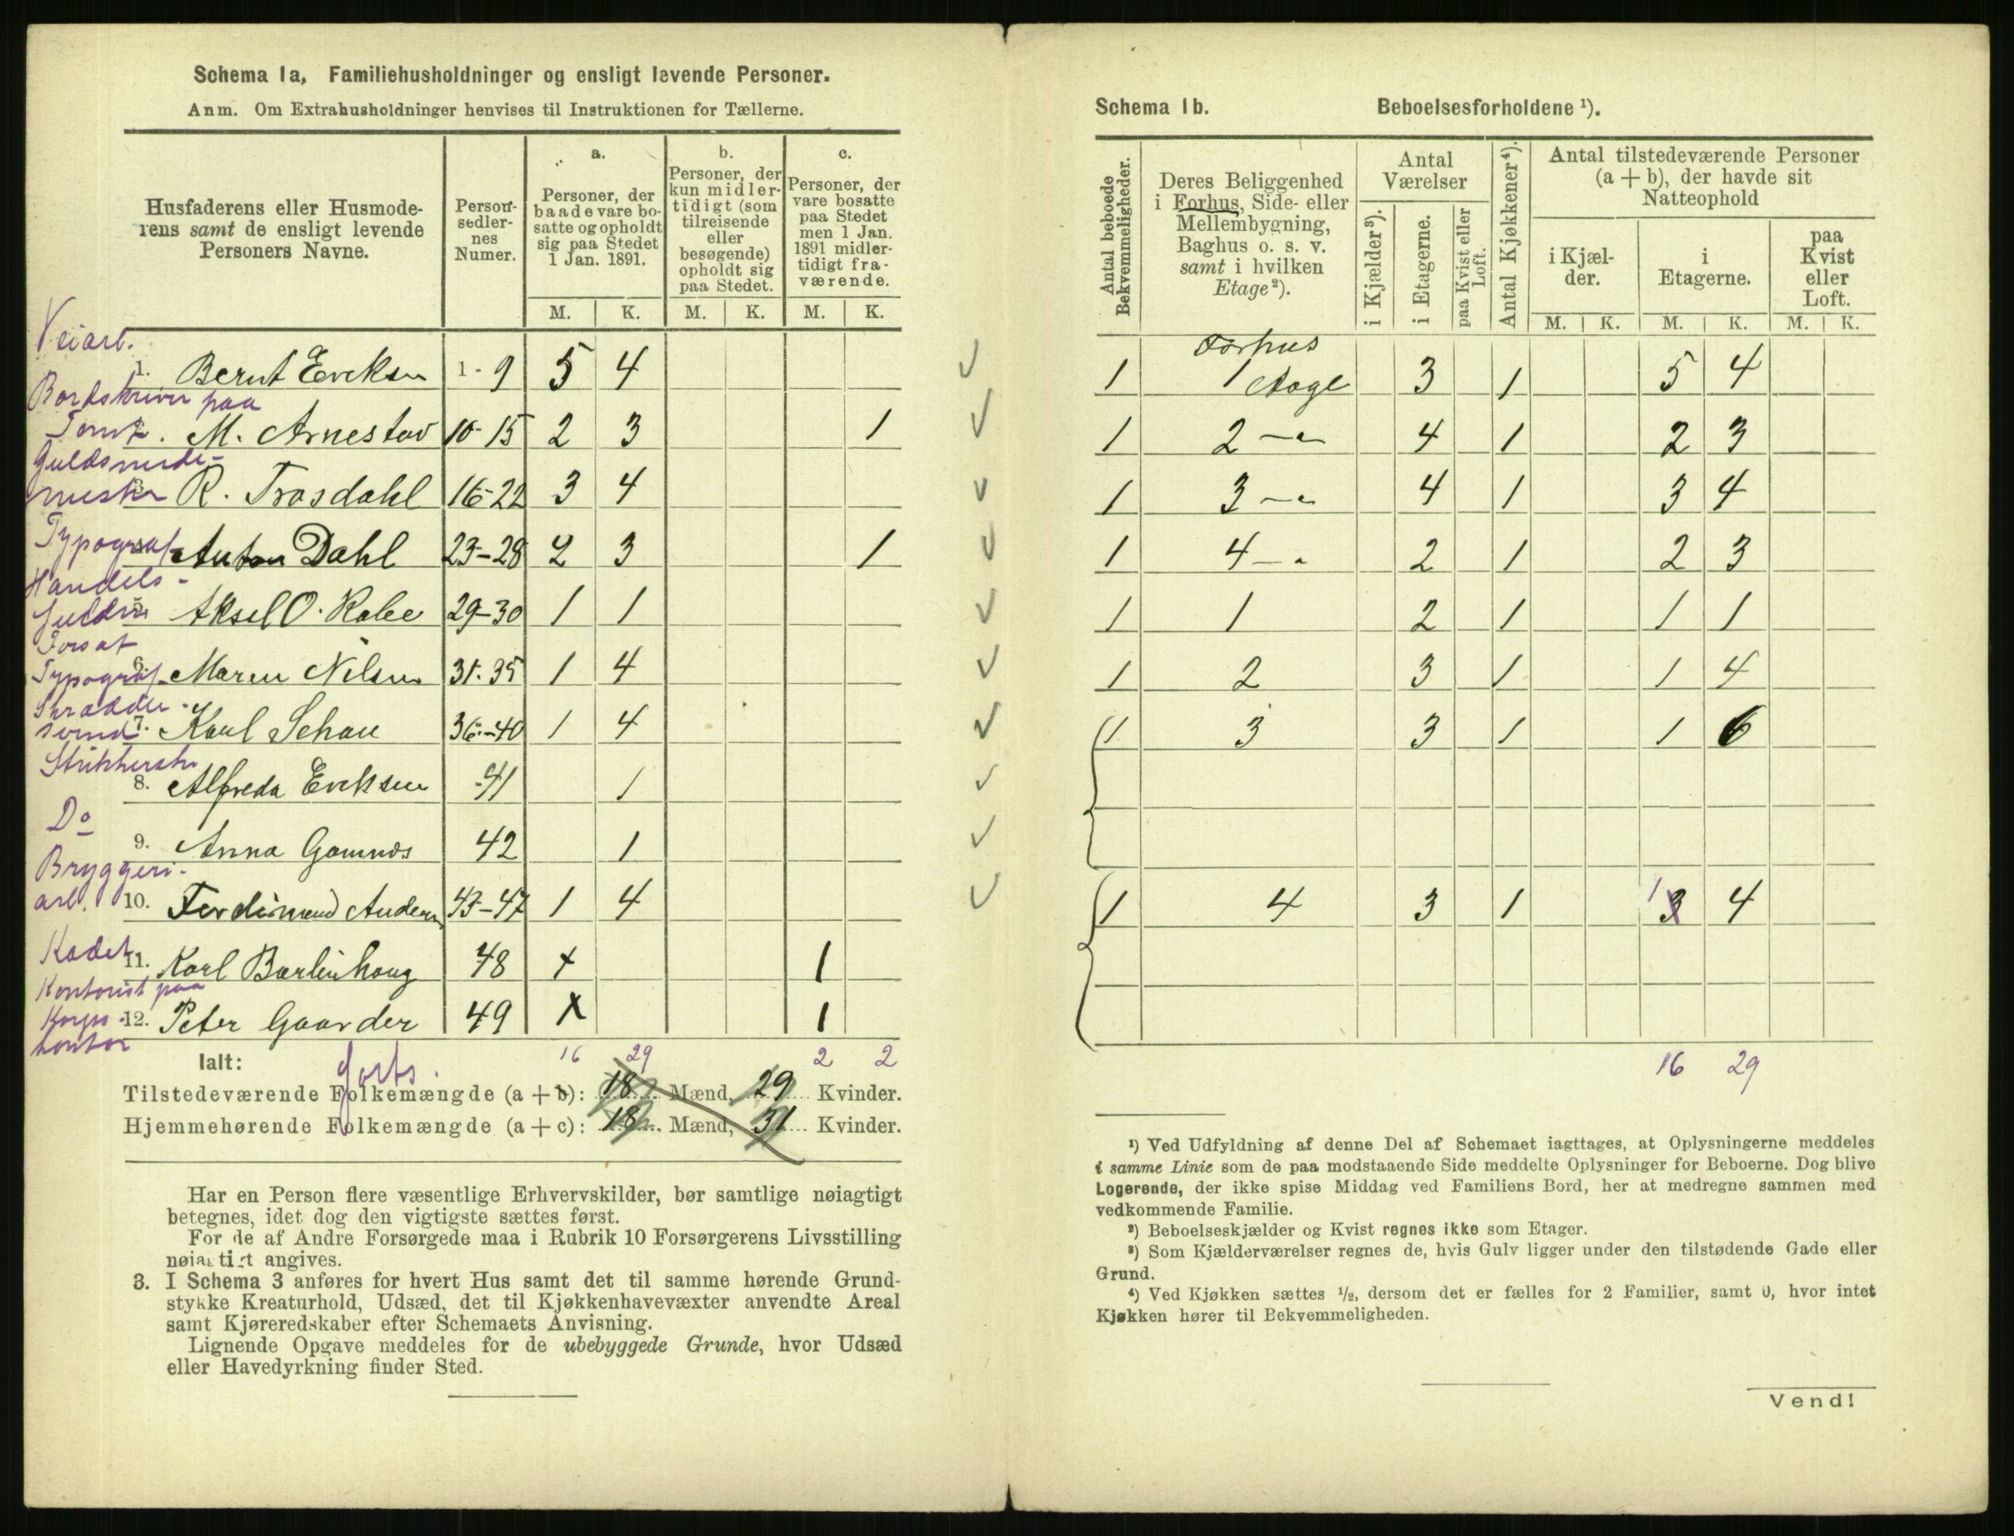 Schema 1a, Familiehusholdninger og ensligt levende Personer.
Anm. Om Extrahusholdninger henvises til Instruktionen for Tællerne.
Husfaderens eller Husmode-
rens samt de ensligt levende
Personers Navne.
Person-
sedler-
nes
Numer.
a.
Personer, der
baade vare bo-
satte og opholdt
sig paa Stedet
1 Jan. 1891.
b.
Personer, der
kun midler-
tidigt (som
tilreisende
eller
besøgende)
opholdt sig
paa Stedet.
c.
Personer, der
vare bosatte
paa Stedet
men 1 Jan.
1891 midler-
tidigt fra-
værende.
M. K. M. K. M. K.
Veiarb.
1. Bernt Ericksen 1-9 5 4
Bordskriver paa
Tomt. M. Arnestad 10-15 2 3 1
Guldsmede-
mester R. Trosdahl 16-22 3 4
Typograf Anton Dahl 23-28 2 3 1
Handels-
5. Aksel O. Rabe 29-30 1 1
Forsat
Typograf 6. Maren Nilsen 31-35 1 4
Skrædder-
svend 7. Karl Schau 36-40 1 4
8. Alfreda Ericksen 41 1
Do
9. Anna Gamnæs 42 1
Bryggeri-
arb. 10. Ferdinand Andersen 43-47 1 4
Kadet
11. Karl Barlinhoug 48 x 1
Kontorist paa
Korps- 12. Peter Gaarder 49 x 1
kontor
Ialt: 16 29 2 2
Forts.
Tilstedeværende Folkemængde (a + b): 18 Mænd, 29 Kvinder.
Hjemmehørende Folkemængde (a + c): 18 Mænd, 31 Kvinder.
Har en Person flere væsentlige Erhvervskilder, bør samtlige nøiagtigt
betegnes, idet dog den vigtigste sættes først.
For de af Andre Forsørgede maa i Rubrik 10 Forsørgerens Livsstilling
nøiagtigt angives.
3. I Schema 3 anføres for hvert Hus samt det til samme hørende Grund-
stykke Kreaturhold, Udsæd, det til Kjøkkenhavevæxter anvendte Areal
samt Kjøreredskaber efter Schemaets Anvisning.
Lignende Opgave meddeles for de ubebyggede Grunde, hvor Udsæd
eller Havedyrkning finder Sted.
Schema 1b. Beboelsesforholdene ¹).
Antal beboede
Bekvemmeligheder.
Deres Beliggenhed
i Forhus, Side- eller
Mellembygning,
Baghus o. s. v.
samt i hvilken
Etage²).
Antal
Værelser
i Kjælder³).
i Etagerne.
paa Kvist eller
Loft.
Antal Kjøkkener⁴).
Antal tilstedeværende Personer
(a + b), der havde sit
Natteophold
i Kjæl-
der.
i
Etagerne.
paa
Kvist
eller
Loft.
M. K. M. K. M. K.
Forhus
1 1 Etage 3 1 5 4
1 2 -"- 4 1 2 3
1 3 -"- 4 1 3 4
1 4 -"- 2 1 2 3
1 1 2 1 1 1
1 2 3 1 1 4
1 3 3 1 1 6
1 4 3 1 1 3 4
16 29
¹) Ved Udfyldning af denne Del af Schemaet iagttages, at Oplysningerne meddeles
i samme Linie som de paa modstaaende Side meddelte Oplysninger for Beboerne. Dog blive
Logerende, der ikke spise Middag ved Familiens Bord, her at medregne sammen med
vedkommende Familie.
²) Beboelseskjælder og Kvist regnes ikke som Etager.
³) Som Kjælderværelser regnes de, hvis Gulv ligger under den tilstødende Gade eller
Grund.
⁴) Ved Kjøkken sættes ½, dersom det er fælles for 2 Familier, samt 0, hvor intet
Kjøkken hører til Bekvemmeligheden.
Vend!